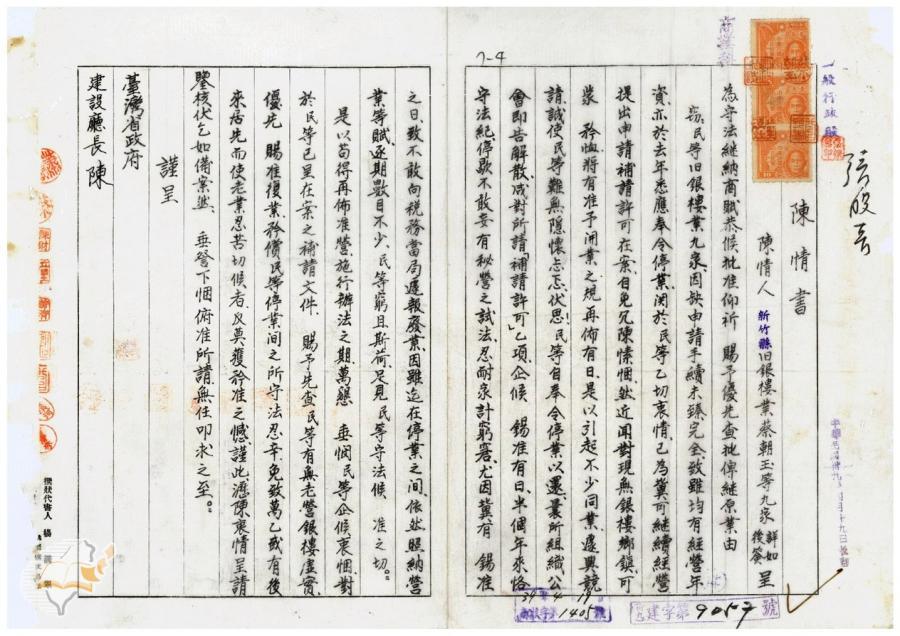 陳情書
陳情人 新竹縣旧銀樓業蔡朝玉等九家 詳如後簽 呈
為守法継納商賦恭候批准仰祈 賜予優先查批俾継原業由
窃民等旧銀樓業九家因缺申請手續未臻完全致雖均有經營年
資亦於去年悉應奉令停業関於民等乙切哀情已為冀可継續經營
提出申請補請許可在案自免冗陳愫悃然近聞對現無銀樓鄉鎮可
蒙 矜恤將有准予開業之規再佈有日是以引起不少同業遽興競
請誠使民等難無隱懷忐忑伏思民等自奉令停業以還曩所組織公
會即告解散或對所請「補請許可」乙項企候 錫准有日半個年來恪
守法紀停歇不敢妄有秘營之試法忍耐家計窮窘尤因冀有 錫准
之日致不敢向税務當局遽報廢業因雖迄在停業之间依然照納營
業等賦逐期數目不少民等窮且斯荷足見民等守法候 准之切。
是以苟得再佈准營施行辦法之期萬懇 垂憫民等企候衷悃對
於民等已呈在案之補請文件 賜予先查民等有無老營銀樓虛實
優先 賜准復業矜償民等停業间之所守法忍辛免致萬乙或有後
來居先而使老業忍苦切候者反莫獲矜准之憾謹此瀝陳衷情呈請
鑒核伏乞如備案然 垂詧下悃俯准所請無任叩求之至。
謹呈
臺灣省政府
建設廳長 陳
7-4
一級行政股
建字第9057號
39 4 19
1405號